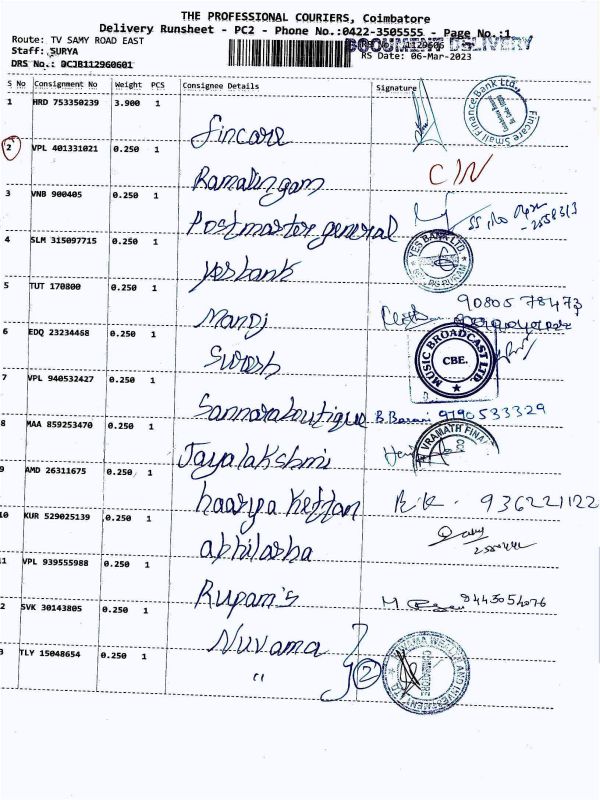 THE PROFESSIONAL COURIERS, Coimbatore
Delivery Runsheet - PC2 - Phone No.:0422-3505555 - Page No.:1
Route: TV SAMY ROAD EAST
DOCUMENT DELIVERY
Staff: SURYA
RS Date: 06-Mar-2023
DRS No.: DCJB112960601
S No Consignment No Weight PCS Consignee Details Signature
1 HRD 753350239 3.900 1 Fincare
Fincare Small Finance Bank Ltd.,
2 VPL 401331021 0.250 1 Ramalingam CIN
3 VNB 900405 0.250 1 Postmaster general
4 SLM 315097715 0.250 1 Yes bank
YES BANK LTD.
5 TUT 170800 0.250 1 Manoj 90805 78473
6 EDQ 23234468 0.250 1 Suresh
MUSIC BROADCAST LTD. CBE.
7 VPL 940532427 0.250 1 Sannaraboutique 9190533329
8 MAA 859253470 0.250 1 Jayalakshmi
VRAMATH FINAN
9 AMD 26311675 0.250 1 haarya Kettan 936221122
10 KUR 529025139 0.250 1 abhilasha
11 VPL 939555988 0.250 1 Rupam's 8443054076
2 SVK 30143805 0.250 1 Nuvama
3 TLY 15048654 0.250 1 " 2
COIMBATORE